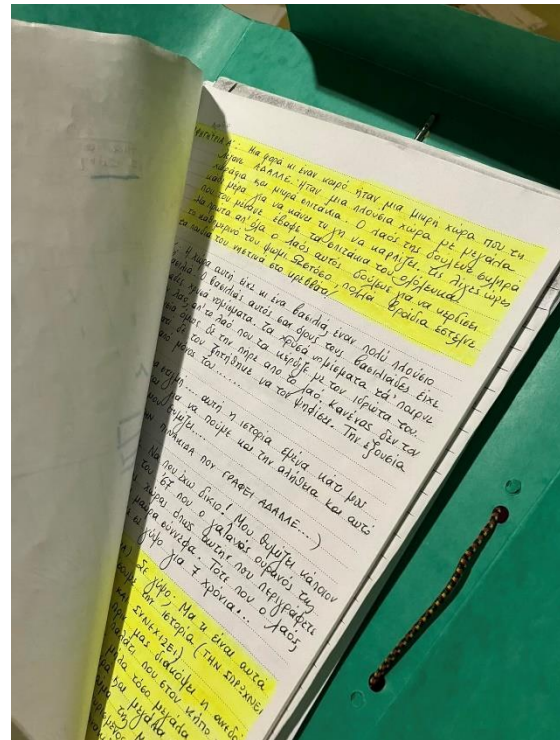 Μια φορά κι έναν καιρό ήταν μια μικρή χώρα που τη
λέγανε ΑΔΑΛΛΕ. Ήταν μια πλούσια χώρα με μεγάλα
και μικρά σπιτάκια. Ο λαός της δούλευε σκληρά
κάθε μέρα για να κάνει τη γη να καρπίζει. Τις λίγες ώρες
που του μένανε έβαφε τα σπιτάκια του
Μα πρώτα απ' όλα ο λαός αυτός δούλευε για να κερδίσει
το καθημερινό του ψωμί. Ωστόσο, πολλά βράδια έστελνε
τα παιδιά του νηστικά στο κρεββάτι!
Η χώρα αυτή είχε κι ένα βασιλιά, έναν πολύ πλούσιο
βασιλιά. Ο βασιλιάς αυτός σαν όλους τους βασιλιάδες είχε
χρυσά νομίσματα. Τα χρυσά νομίσματα τα 'παιρνε
απ' το λαό που τα κέρδιζε με τον ιδρώτα του
όμως δε την πήρε από το λαό. Κανένας δεν τον
δε του ζητήθηκε να τον ψηφίσει. Την εξουσία
μόνος του......
στιγμή... αυτή η ιστορία εμένα κάτι μου
να πούμε και την αλήθεια και αυτό
θυμίζει...
ΠΙΝΑΚΙΔΑ ΠΟΥ ΓΡΑΦΕΙ ΑΔΑΛΛΕ...)
Να που έχω δίκιο! Μου θυμίζει κάποιον
του '67 που ο γαλανός ουρανός της
χώρας όπως αυτής που περιγράφετε
μαύρα σύννεφα. Τότε που ο λαός
γύψο για 7 χρόνια...
Σε γύψο; Μα τι είναι αυτά
την ιστορία (ΤΗΝ ΣΠΡΩΧΝΕΙ
ΚΑΙ ΣΥΝΕΧΙΖΕΙ)
μας διακόψει η
παλάτι που στον κήπο
τόσο μεγάλα
και μεγάλα
της